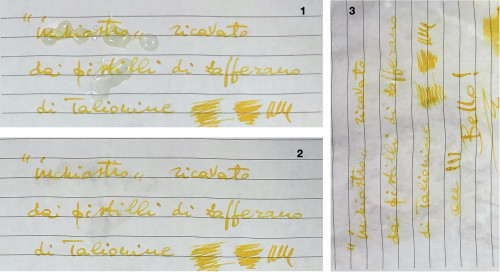 1
"inchiostro" ricavato
dai pistilli di zafferano
di Taliouine
2
"inchiostro" ricavato
dai pistilli di zafferano
di Taliouine
3
"inchiostro" ricavato
dai pistilli di zafferano
di Taliouine
Bello!